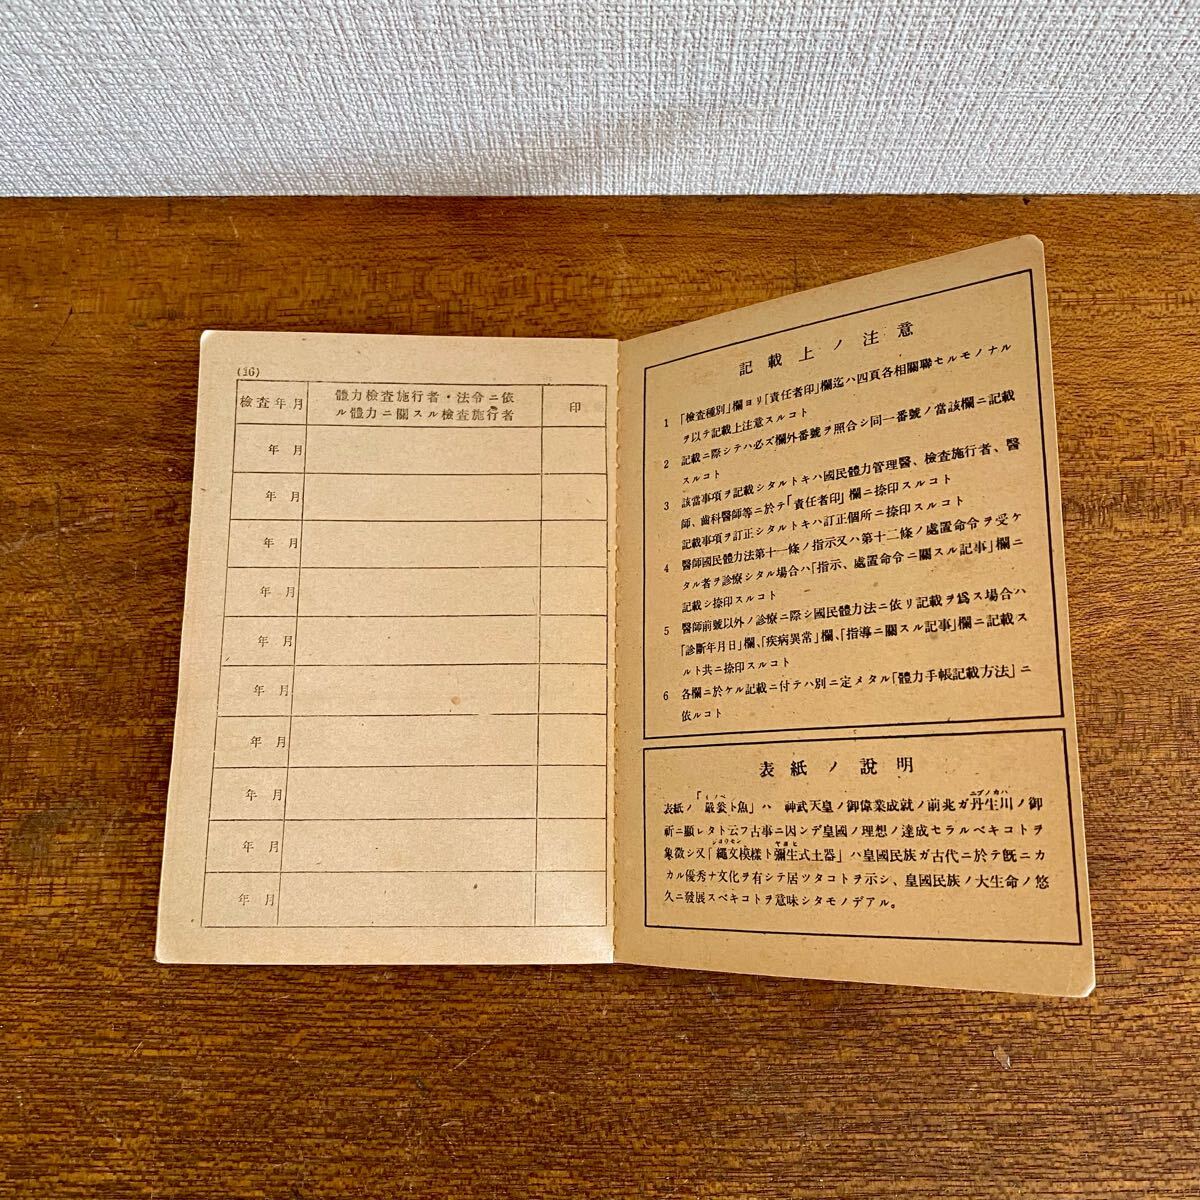 (16)
檢査年月
體力檢査施行者・法令ニ依
ル體力ニ關スル檢査施行者
印
年 月
年 月
年 月
年 月
年 月
年 月
年 月
年 月
年 月
年 月
記載上ノ注意
1 「檢査種別」欄ヨリ「責任者印」欄迄ハ四頁各相關聯セルモノナル
ヲ以テ記載上注意スルコト
2 記載ニ際シテハ必ズ欄外番號ヲ照合シ同一番號ノ當該欄ニ記載
スルコト
3 該當事項ヲ記載シタルトキハ國民體力管理醫、檢査施行者、醫
師、齒科醫師等ニ於テ「責任者印」欄ニ捺印スルコト
記載事項ヲ訂正シタルトキハ訂正個所ニ捺印スルコト
4 醫師國民體力法第十一條ノ指示又ハ第十二條ノ處置命令ヲ受ケ
タル者ヲ診療シタル場合ハ「指示、處置命令ニ關スル記事」欄ニ
記載シ捺印スルコト
5 醫師前號以外ノ診療ニ際シ國民體力法ニ依リ記載ヲ爲ス場合ハ
「診斷年月日」欄、「疾病異常」欄、「指導ニ關スル記事」欄ニ記載ス
ルト共ニ捺印スルコト
6 各欄ニ於ケル記載ニ付テハ別ニ定メタル「體力手帳記載方法」ニ
依ルコト
表紙ノ說明
表紙ノ「嚴瓮ト魚」ハ 神武天皇ノ御偉業成就ノ前兆ガ丹生川ノ御
祈ニ顯レタト云フ古事ニ因ンデ皇國ノ理想ノ達成セラルベキコトヲ
象徵シ又「繩文模樣ト彌生式土器」ハ皇國民族ガ古代ニ於テ旣ニカ
カル優秀ナ文化ヲ有シテ居ツタコトヲ示シ、皇國民族ノ大生命ノ悠
久ニ發展スベキコトヲ意味シタモノデアル。